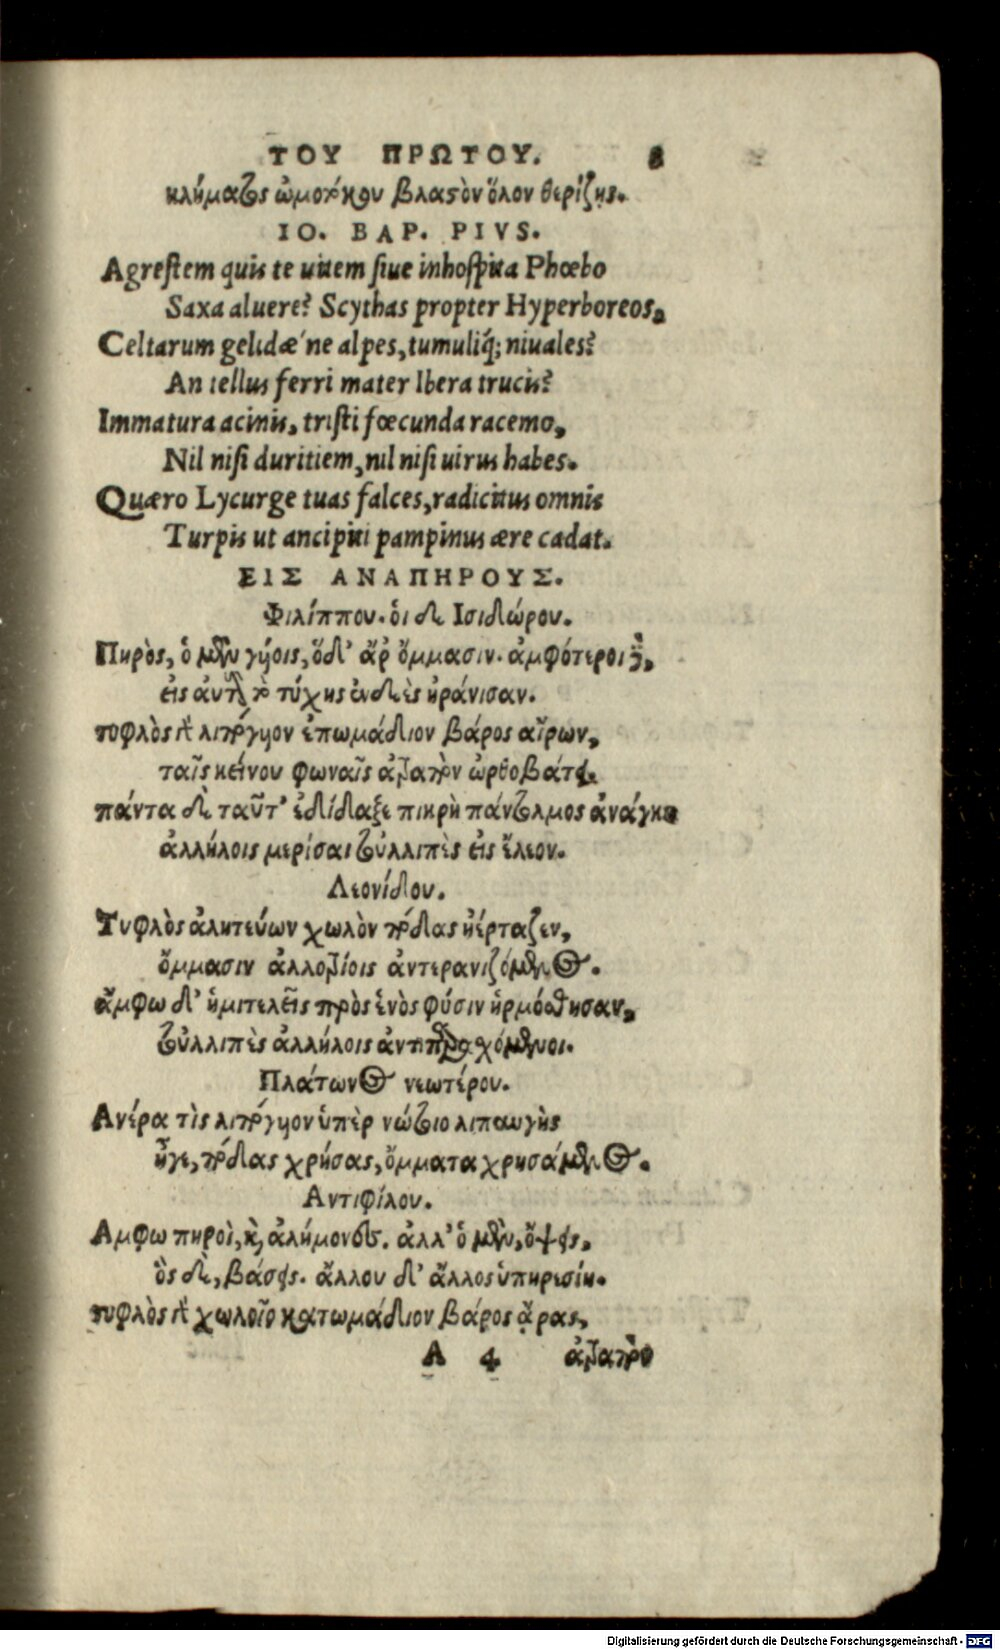 ΤΟΥ ΠΡΩΤΟΥ. 8
κλήματος ὠμοτόκου βλαστὸν ὅλον θερίζῃς.
IO. BAP. PIVS.
Agrestem quis te uitem siue inhospita Phœbo
Saxa aluere? Scythas propter Hyperboreos,
Celtarum gelidæ´ne alpes, tumuliq́; niuales?
An tellus ferri mater Ibera trucis?
Immatura acinis, tristi fœcunda racemo,
Nil nisi duritiem, nil nisi uirus habes.
Quæro Lycurge tuas falces, radicitus omnis
Turpis ut ancipiti pampinus ære cadat.
ΕΙΣ ΑΝΑΠΗΡΟΥΣ.
Φιλίππου. ὁι δὲ Ισιδώρου.
Πηρὸς, ὁ μὲν γήοις, ὅδ' ἄρ ὄμμασιν. ἀμφότεροι δὲ,
εἰς αὑτοὺς τὸ τύχης ἐνδεὲς ἠράνισαν.
τυφλὸς γὰρ λιπόγυιον ἐπωμάδιον βάρος αἴρων,
ταῖς κείνου φωναῖς ἀτραπὸν ὠρθοβάτει.
πάντα δὲ ταῦτ' ἐδίδαξε πικρὴ πάντολμος ἀνάγκη
ἀλλήλοις μερίσαι τοὐλλιπὲς εἰς ἔλεον.
Λεονίδου.
Τυφλὸς ἀλητεύων χωλὸν πόδας ἠέρταζεν,
ὄμμασιν ἀλλοτρίοις ἀντερανιζόμενος.
ἄμφω δ' ἡμιτελεῖς πρὸς ἑνὸς φύσιν ἡρμόσθησαν,
τοὐλλιπὲς ἀλλήλοις ἀντιπαρασχόμενοι.
Πλάτωνος νεωτέρου.
Ανέρα τὶς λιπόγυιον ὑπὲρ νώτοιο λιπαυγὴς
ἦγε, πόδας χρήσας, ὄμματα χρησάμενος.
Αντιφίλου.
Αμφω πηροὶ, καὶ ἀλήμονες. ἀλλ' ὁ μὲν, ὄψεις,
ὃς δὲ, βάσεις. ἄλλου δ' ἄλλος ὑπηρεσίη.
τυφλὸς γὰρ χωλοῖο κατωμάδιον βάρος ἄρας,
A 4 ἀτραπὸ
Digitalisierung gefördert durch die Deutsche Forschungsgemeinschaft - DFG